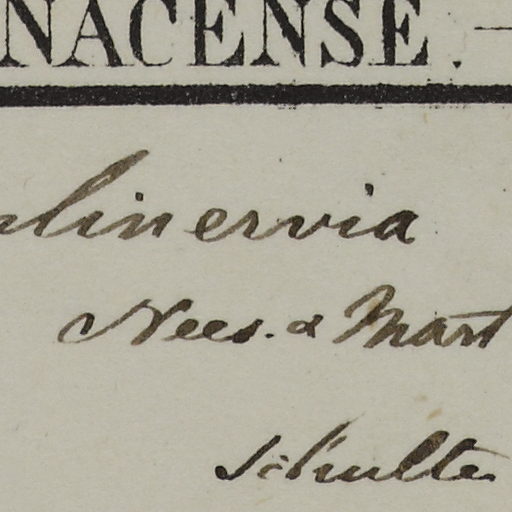 NACENSE.
linervia
Nees. & Mart
Schulte